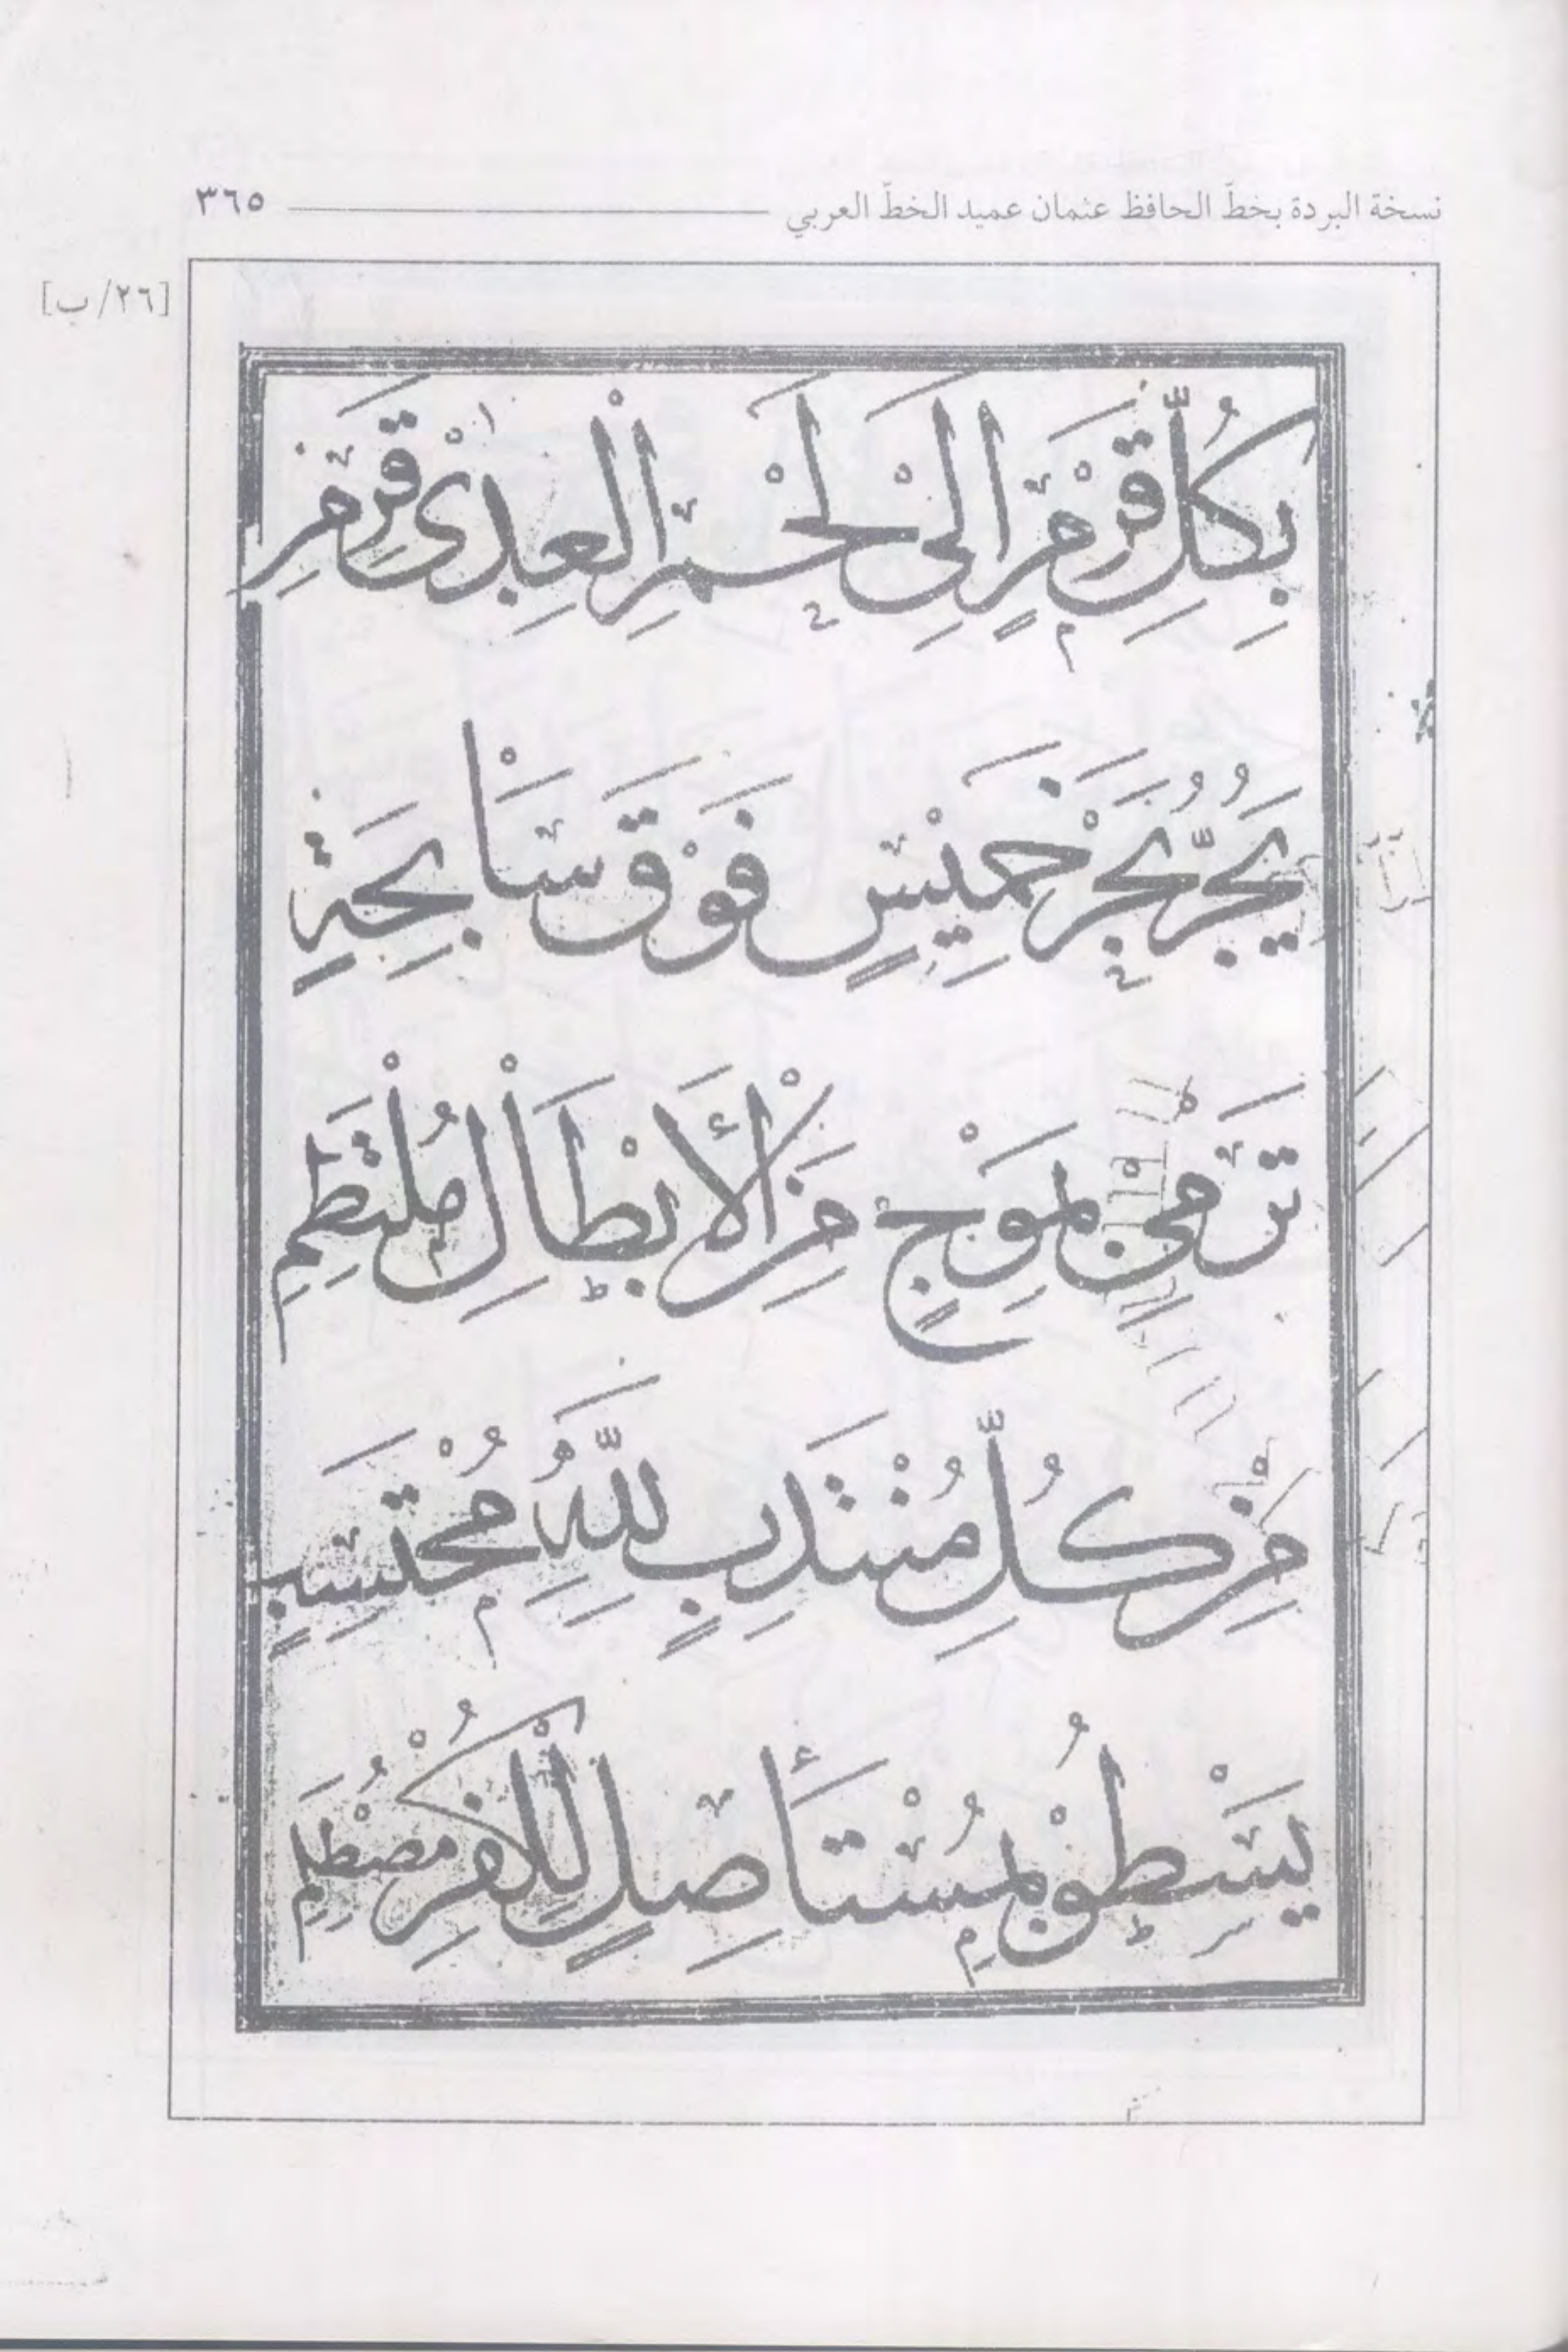 نسخة البردة بخطّ الحافظ عثمان عميد الخطّ العربي ٣٦٥
[٢٦/ب]
بِكُلِّ قَرْمٍ اِلٰى لَحْمِ الْعِدٰى قَرِمِ
يَجُرُّ بَحْرَ خَمِيْسٍ فَوْقَ سَابِحَةٍ
تَرْمِيْ بِمَوْجٍ مِنَ الْأَبْطَالِ مُلْتَطِمِ
مِنْ كُلِّ مُنْتَدِبٍ لِلّٰهِ مُحْتَسِبٍ
يَسْطُوْ بِمُسْتَأْصِلٍ لِلْكُفْرِ مُصْطَلِمِ